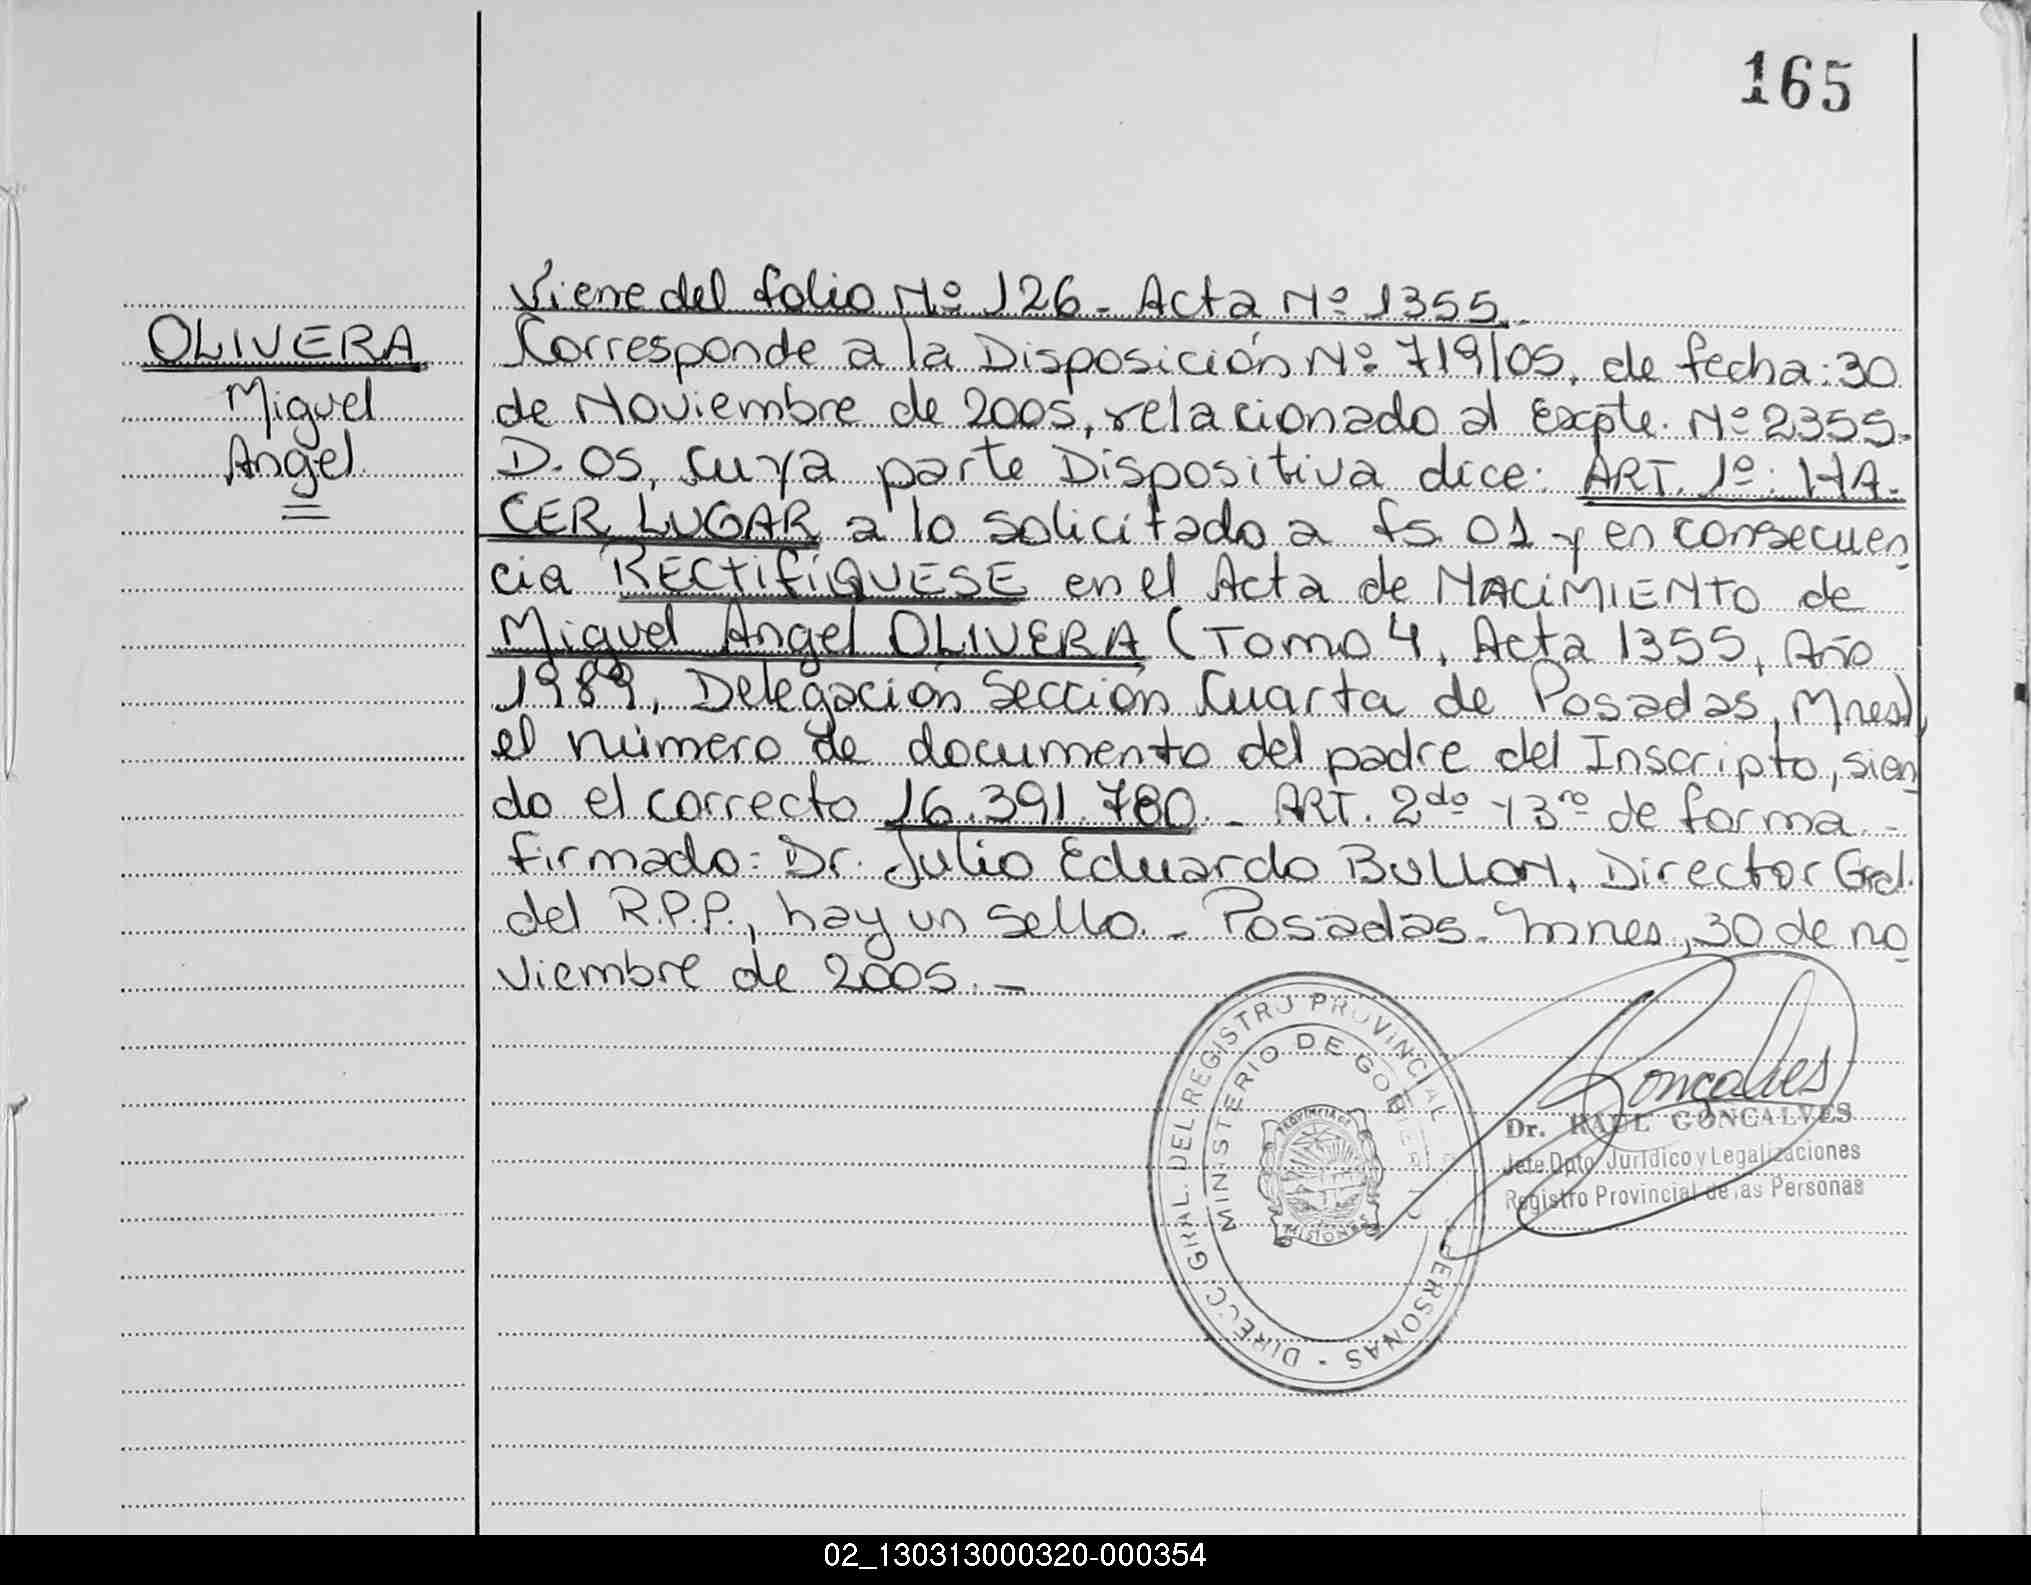 165
OLIVERA
Miguel
Angel
Viene del folio Nº 126 - Acta Nº 1355.
Corresponde a la Disposición Nº 719/05, de fecha: 30
de Noviembre de 2005, relacionado al Expte. Nº 2355-
D-05, Cuya parte Dispositiva dice: ART. 1º: HA-
CER LUGAR a lo solicitado a fs 01 y en consecuen
cia RECTIFÍQUESE en el Acta de NACIMIENTO de
Miguel Angel OLIVERA (Tomo 4, Acta 1355, Año
1989, Delegación Sección Cuarta de Posadas, Mnes),
el número de documento del padre del Inscripto, sien
do el correcto 16.391.780.- ART. 2do y 3ro de forma.-
firmado: Dr. Julio Eduardo BULLON, Director Gral.
del R.P.P., hay un sello.- Posadas-Mnes, 30 de no
viembre de 2005.-
DIRECC. GRAL. DEL REGISTRO PROVINCIAL PERSONAS -
MINISTERIO DE GOBIERNO
PROVINCIA DE
MISIONES
Goncalves
Dr. RAUL GONCALVES
Jefe Dpto. Jurídico y Legalizaciones
Registro Provincial de las Personas
02_130313000320-000354